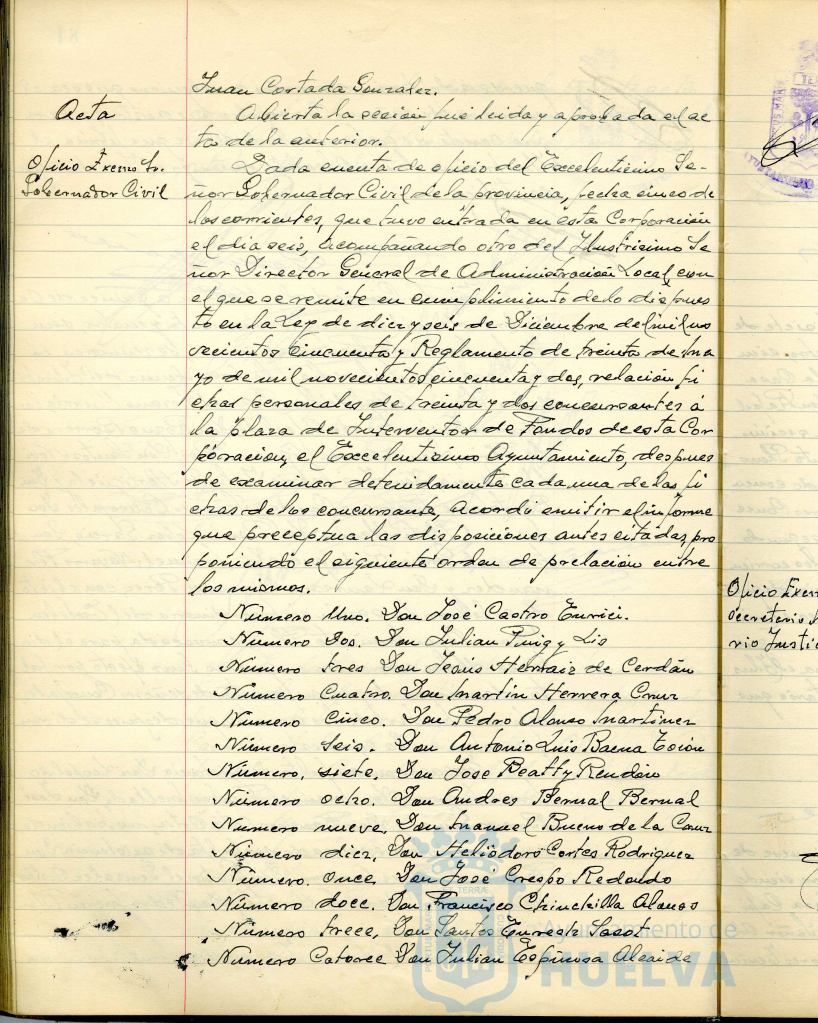 Juan Cortada Gonzalez.
Acta
Abierta la sesión fué leida y aprobada el ac
ta de la anterior.
Oficio Excmo Sr.
Gobernador Civil
Dada cuenta de oficio del Excelentisimo Se-
ñor Gobernador Civil de la provincia, fecha cinco de
los corrientes, que tuvo entrada en esta Corporación
el dia seis, acompañando otro del Ilustrisimo Se
ñor Director General de Administración Local, con
el que se remite en cumplimiento de lo dispues
to en la Ley de diez y seis de Diciembre de mil no
vecientos cincuenta y Reglamento de treinta de Ma
yo de mil novecientos cincuenta y dos, relación fi
chas personales de treinta y dos concursantes á
la plaza de Interventor de Fondos de esta Cor
poracion, el Excelentisimo Ayuntamiento, despues
de examinar detenidamente cada una de las fi
chas de los concursante, acordó emitir el informe
que preceptua las disposiciones antes citadas, pro
poniendo el siguiente orden de prelación entre
los mismos.
Número Uno. Don José Castro Enrici.
Número Dos. Don Julian Puig y Lis
Número tres Don Jesús Herraiz de Cerdán
Número Cuatro. Don Martin Herrera Cruz
Número Cinco. Don Pedro Alonso Martinez
Número Seis. Don Antonio Luis Baena Tosión
Número, siete, Don Jose Beatty Rendón
Número ocho. Don Andres Bernal Bernal
Numero nueve, Don Manuel Bueno de la Cruz
Número diez, Don Heliódoro Cortes Rodriguez
Número. once, Don José Crespo Redondo
Número doce. Don Francisco Chinchilla Alonso
Número trece, Don Santos
Numero Catorce Don Julian Espinosa Alcaide
Oficio Exc
Secretario
rio Justi
Ayuntamiento de
HUELVA